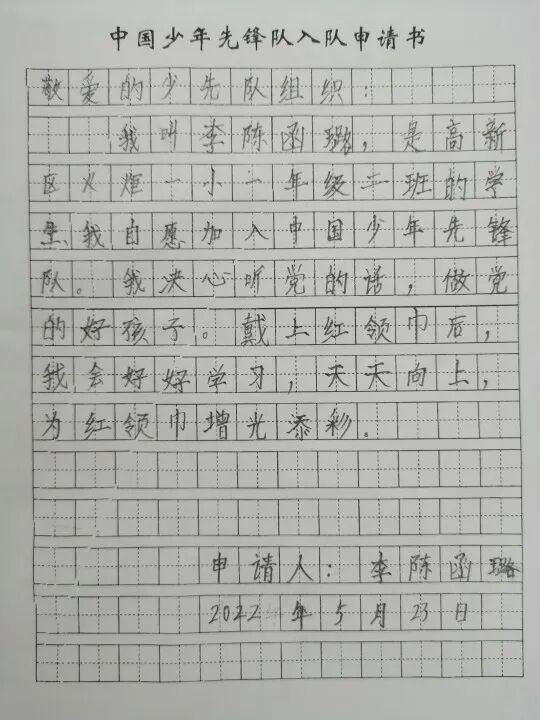 中国少年先锋队入队申请书
敬爱的少先队组织:
我叫李陈函璐,是高新
区火炬一小一年级二班的学
生,我自愿加入中国少年先锋
队。我决心听党的话,做党
的好孩子。戴上红领巾后,
我会好好学习,天天向上,
为红领巾增光添彩。
申请人:李陈函璐
2022年5月23日